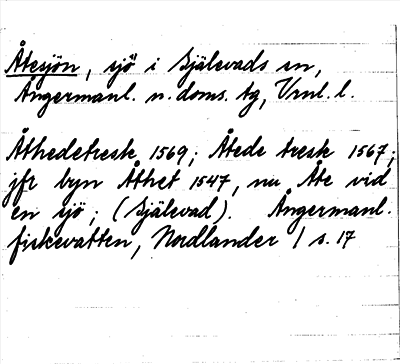 Åtesjön, sjö i Själevads sn,
Ångermanl. n. doms. tg, Vrnl. l.
Åthedetresk 1569; Åtede tresk 1567;
jfr byn Åthet 1547, nu Åte vid
en sjö; (Själevad). Ångermanl.
fiskevatten, Nordlander / s. 17